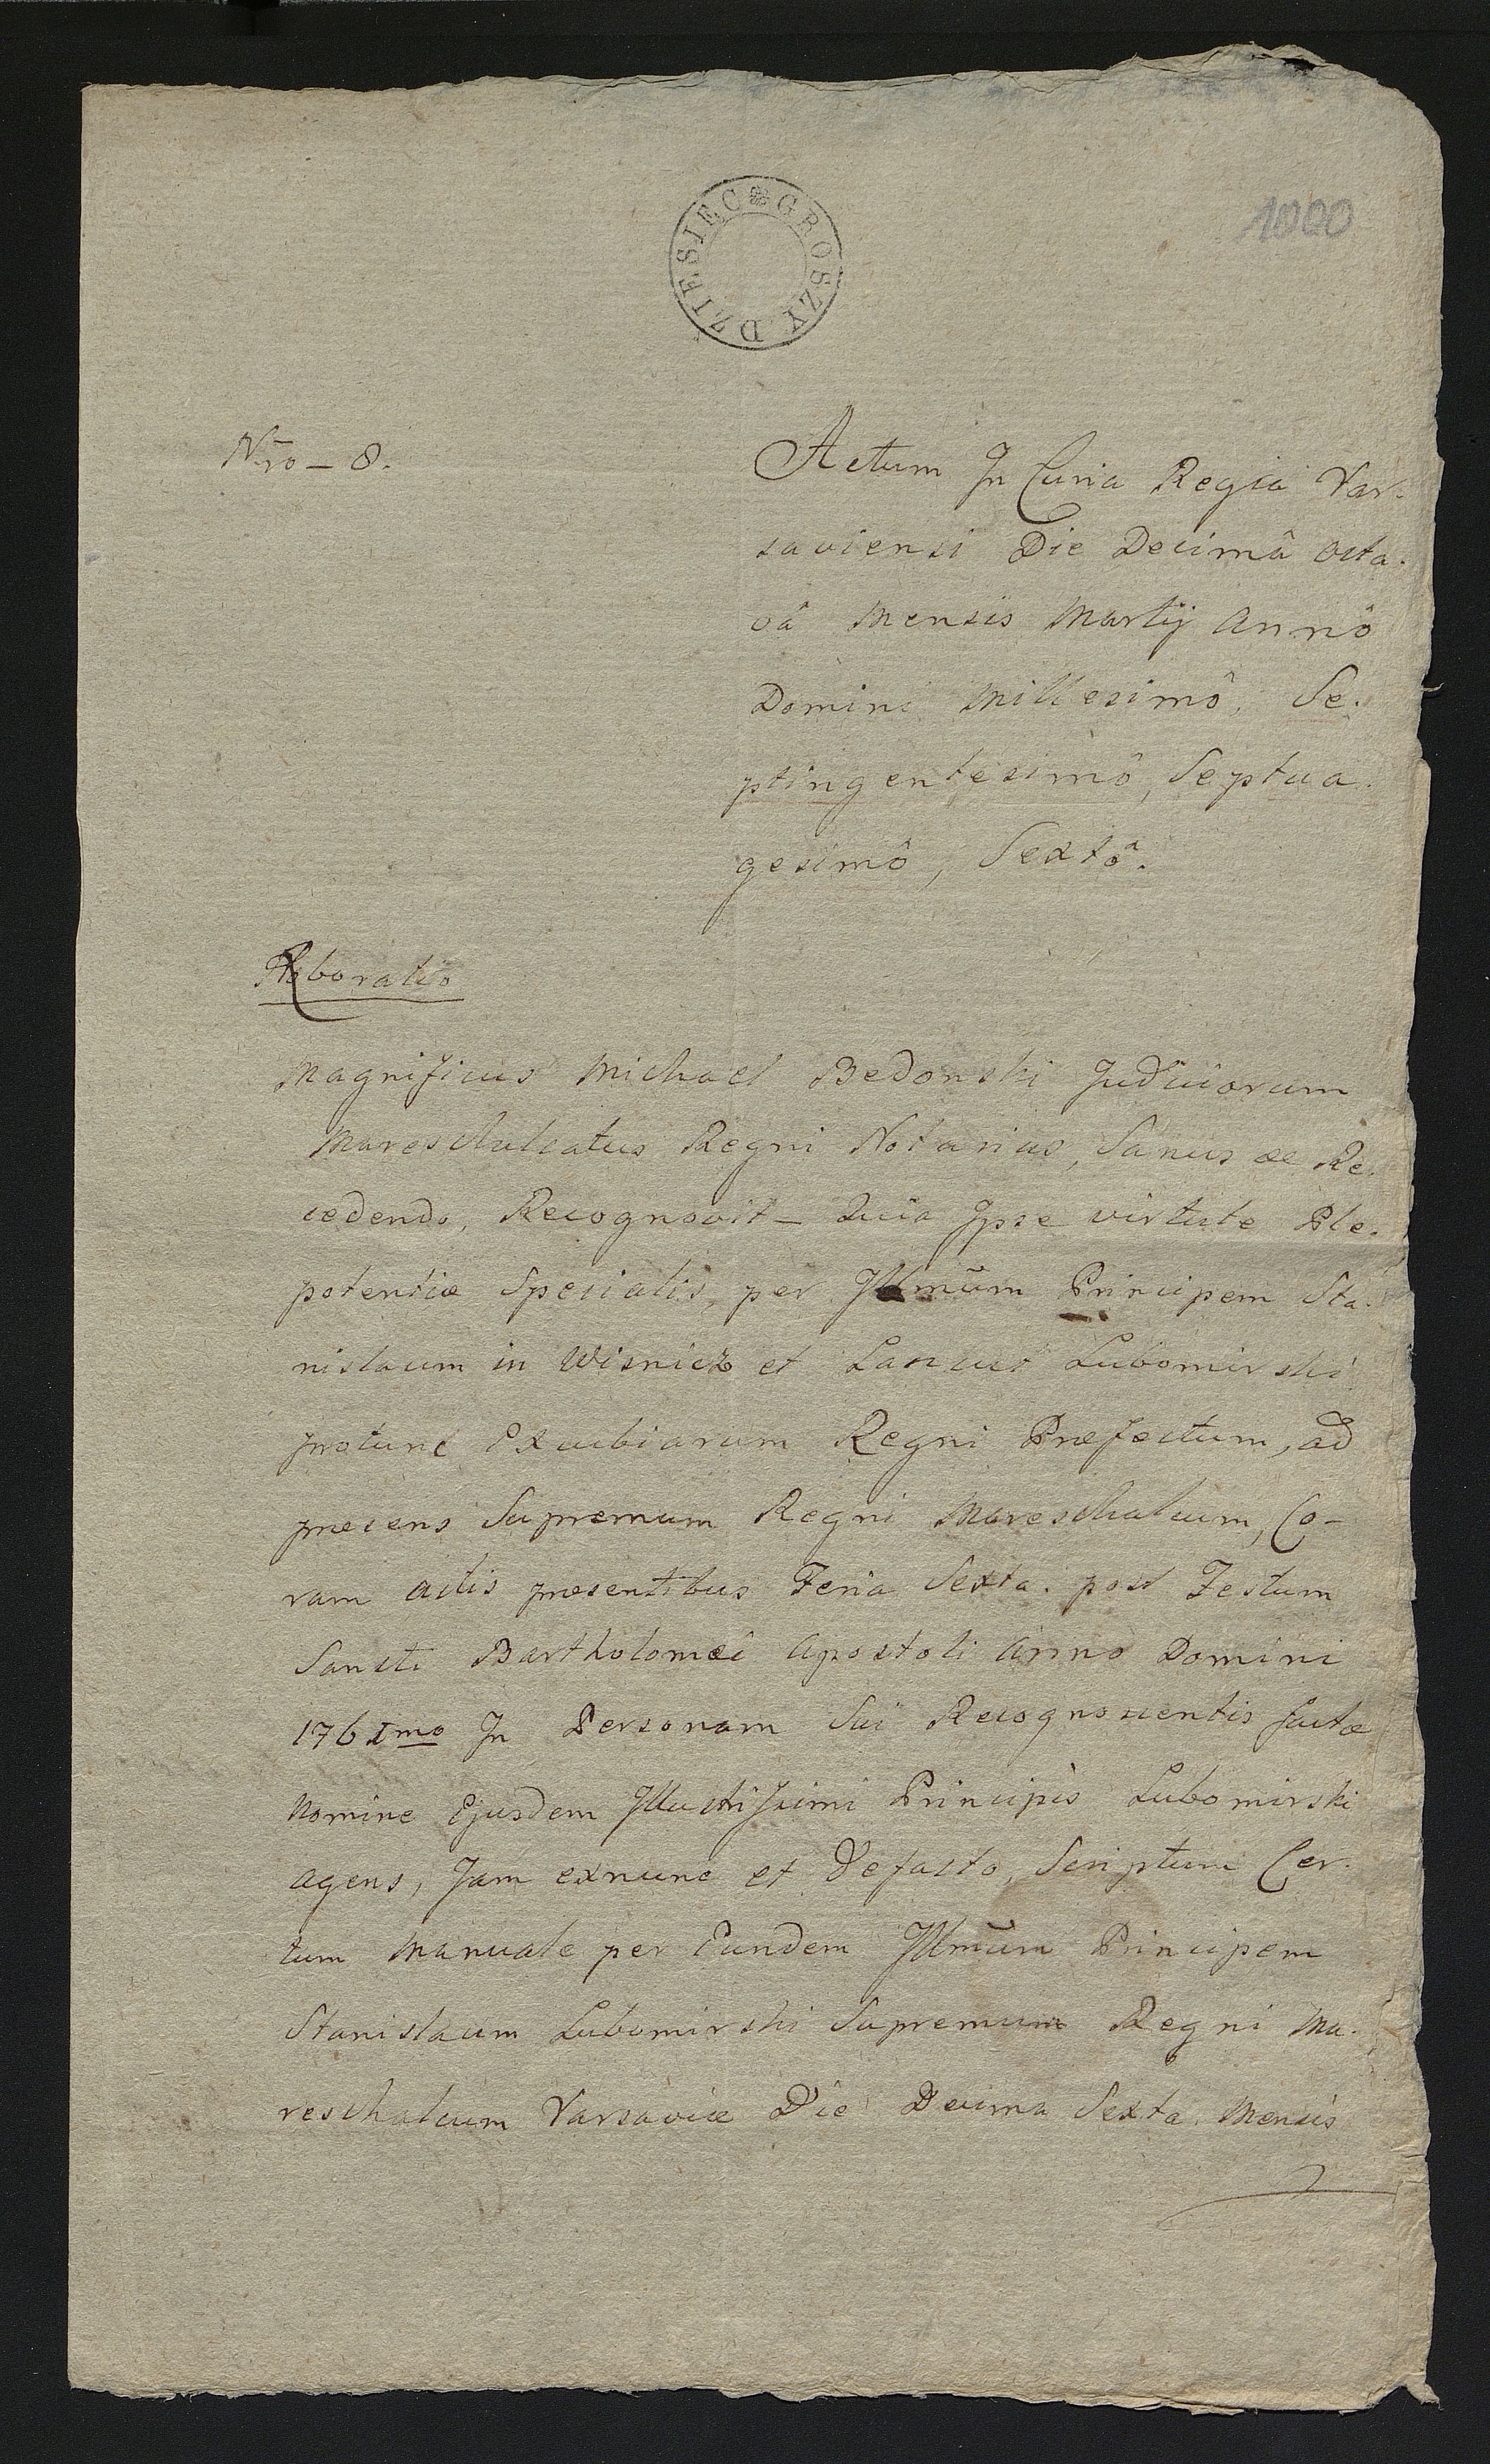 GROSZY DZIESIĘC
1000
Nro – 8.
Actum In Curia Regia Var-
saviensi Die Decimâ Octa-
vâ Mensis Martij Annô
Domini Millesimô, Se-
ptingentesimô, Septua-
gesimô, Sextô.
Roboratio
Magnificus Michael Bedonski Judiciorum
Mareschalcatus Regni Notarius, Sanus ac Re-
cedendo, Recognovit – Quia Ipse virtute Ple-
potentiæ Specialis, per Illmũm Principem Sta-
nislaum in Wisnicz et Lancut Lubomirski
protunc Excubiarum Regni Præfectum, ad
præsens Supremum Regni Mareschalcum, Co-
ram actis præsentibus Feria Sexta post Festum
Sancti Bartholomæi Apostoli Anno Domini
1761mo In Personam Sui Recognoscentis factæ
Nomine Ejusdem Illustrissimi Principis Lubomirski
agens, Jam exnunc et Defacto, Scriptum Cer-
tum Manuale per Eundem Illmũm Principem
Stanislaum Lubomirski Supremum Regni Ma-
reschalcum Varsaviæ Die Decima Sexta Mensis